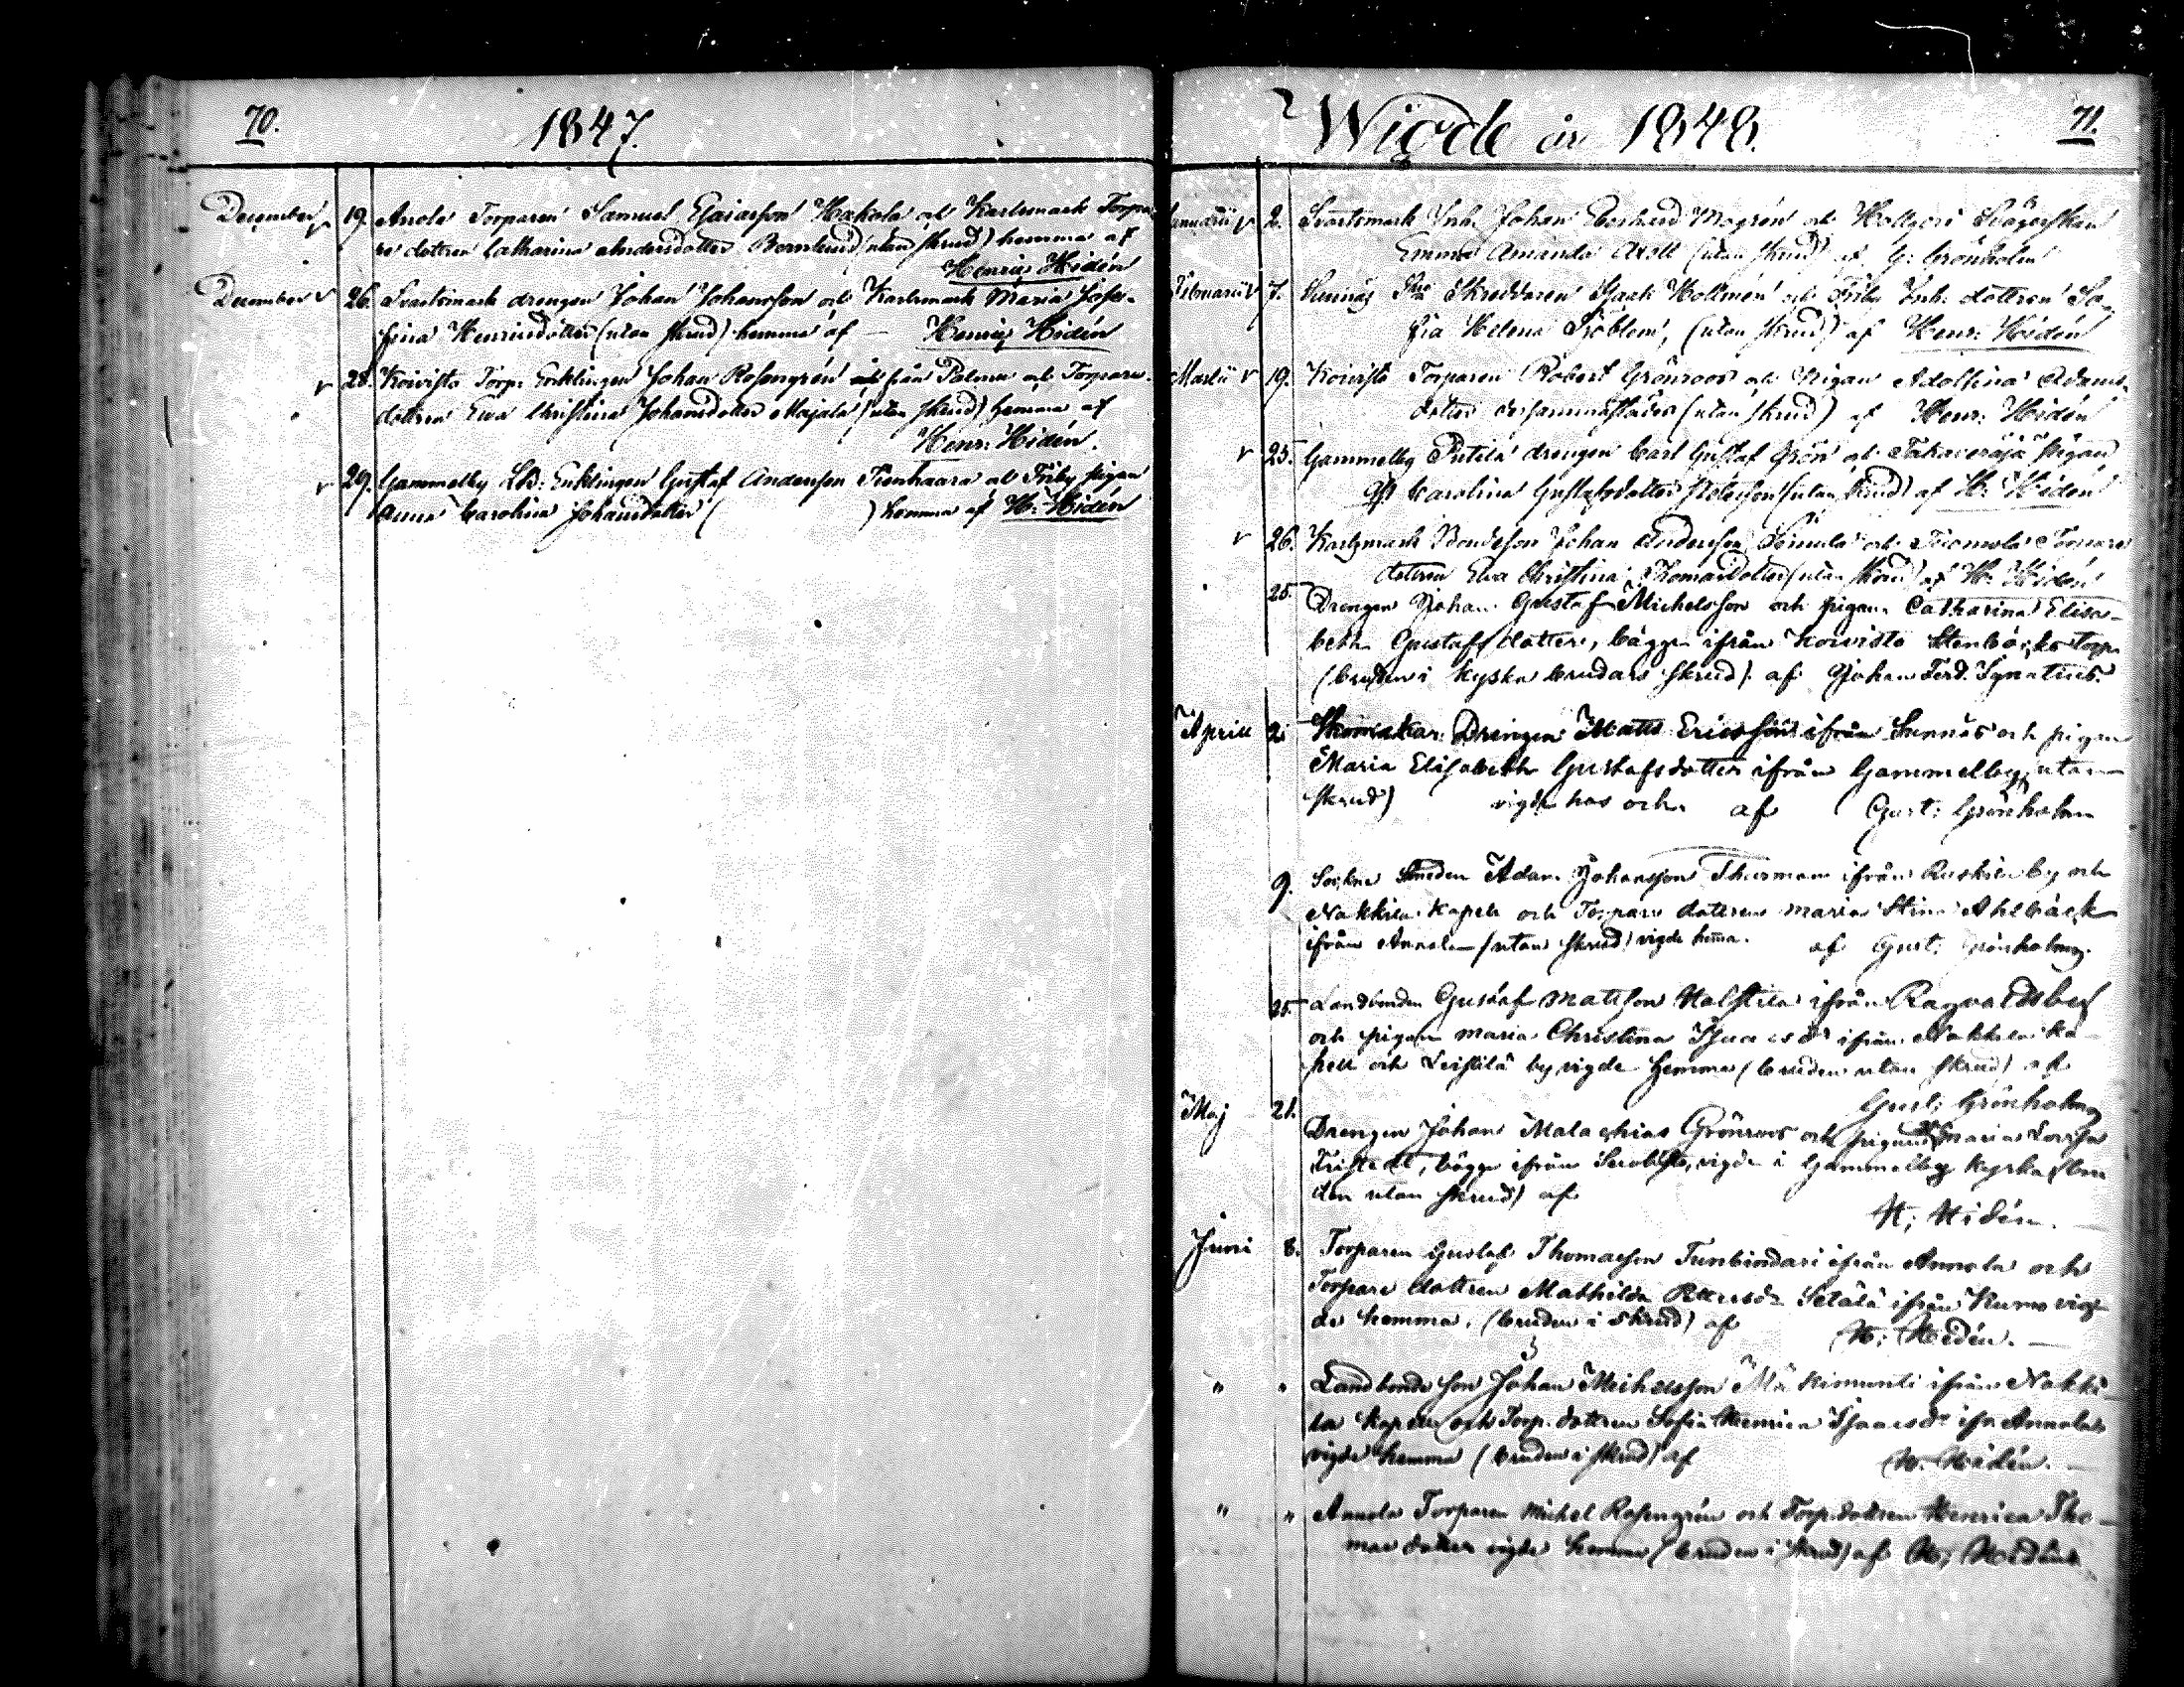 70.
1847.
December 19. Anola Torparen Samuel Esaiasson Hakola och Karlsmark Torpa-
re dottren Catharina Andersdotter Bornlund (utan skrud) hemma af
Henric Hidén
December 26. Svartsmark drengen Johan Johansson och Karlsmark Maria Jose-
fina Henricsdotter (utan skrud) hemma af — Henric Hidén
28. Koivisto Torp. Enklingen Johan Rosengrén från Palmu och Torpare-
dottren Eva Christina Johansdotter Majala (utan skrud) hemma af
Henr: Hidén.
29. Gammelby Ldb: Enklingen Gustaf Andersson Tienhaara och Friby pigan
Anna Carolina Johansdotter ( ) hemma af H: Hidén
Wigde år 1848.
71.
Januarii 2. Svartsmark Inh. Johan Eberhard Mogrén och
Emma Amanda (utan skrud) af G: Grönholm
Februarii 7. Sunnäs Skreddaren Isaak Hollmén och Friby Inh. dottren So-
fia Helena Sjöblom, (utan skrud) af Henr: Hidén
Martii 19. Koivisto Torparen Robert Grönroos och Pigan Adolfina Adams-
dotter dersammastädes (utan skrud) af Henr: Hidén
25. Gammelby Pietilä drengen Carl Gustaf Grön och pigan
Carolina Gustafsdotter (utan skrud) af H: Hidén
26. Karlsmark Bondeson Johan Andersson och Tuomola Torpare
dottren Eva Christina Thomasdotter (utan skrud) af H: Hidén
25. Drengen Johan Gustaf Michelsson och pigan Catharina Elisa-
beth Gustafsdotter, bägge ifrån Koivisto Stenbäcks torp
(bruden i kyska brudars skrud) af Johan Ferd. Ignatius.
April 2. Drengen Matts Ericsson ifrån Sunnäs och pigan
Maria Elisabeth Gustafsdotter ifrån Gammelby, utan
skrud) vigde hos och af Gust: Grönholm
9. Sockne Smeden Adam Johansson Thurman ifrån Ruskila by och
Nakkila Kapell och Torpare dottren Maria Stina Ahlbäck
ifrån Annola (utan skrud) vigde hema. af Gust: Grönholm.
25. Landbonden Gustaf Mattson Halstila ifrån Ragvaldsby
och pigan Maria Christina Isacsdr ifrån Nakkila ka-
pell och Leistilä by vigde hemma (bruden utan skrud) af
Gust: Grönholm
Maj 21.
Drengen Johan Malachias Grönroos och pigan Maria Lovisa
bägge ifrån vigde i Gammelby kyrka (bru-
den utan skrud) af
H; Hidén.
Juni 8. Torparen Gustaf Thomasson Tunbindari ifrån Annola och
Torpare dottren Mathilda Petersdr Setälä ifrån Kurno vig-
de hemma, (bruden i skrud) af H; Hidén.
" " Landbonde son Johan Michelsson ifrån Nakki-
la kapell och Torp. dottren Sofia Henrica Isaacsdr ifr Annola
vigde hemma (bruden i skrud) af H. Hidén.
" " Annola Torparen Michel Rosengrén och Torp.dottren Henrica Tho-
mas dotter vigde hemma (bruden i skrud) af H; Hidén